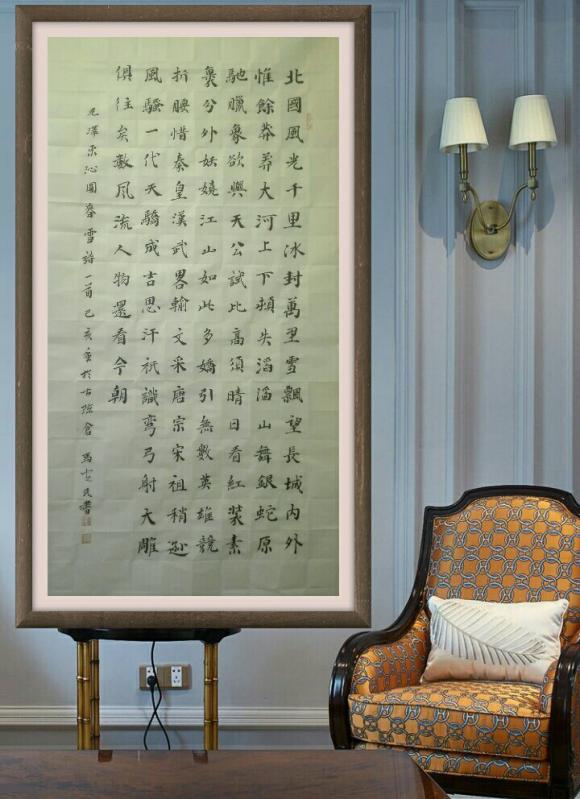 北國風光千里冰封萬里雪飄望長城内外
惟餘莽莽大河上下頓失滔滔山舞銀蛇原
馳臘象欲與天公試比高須晴日看紅裝素
裹分外妖嬈江山如此多嬌引無數英雄競
折腰惜秦皇漢武畧輸文采唐宗宋祖稍遜
風騷一代天驕成吉思汗祇識彎弓射大雕
俱往矣數風流人物還看今朝
毛澤東沁園春雪詞一首己亥於古陳倉馬民書